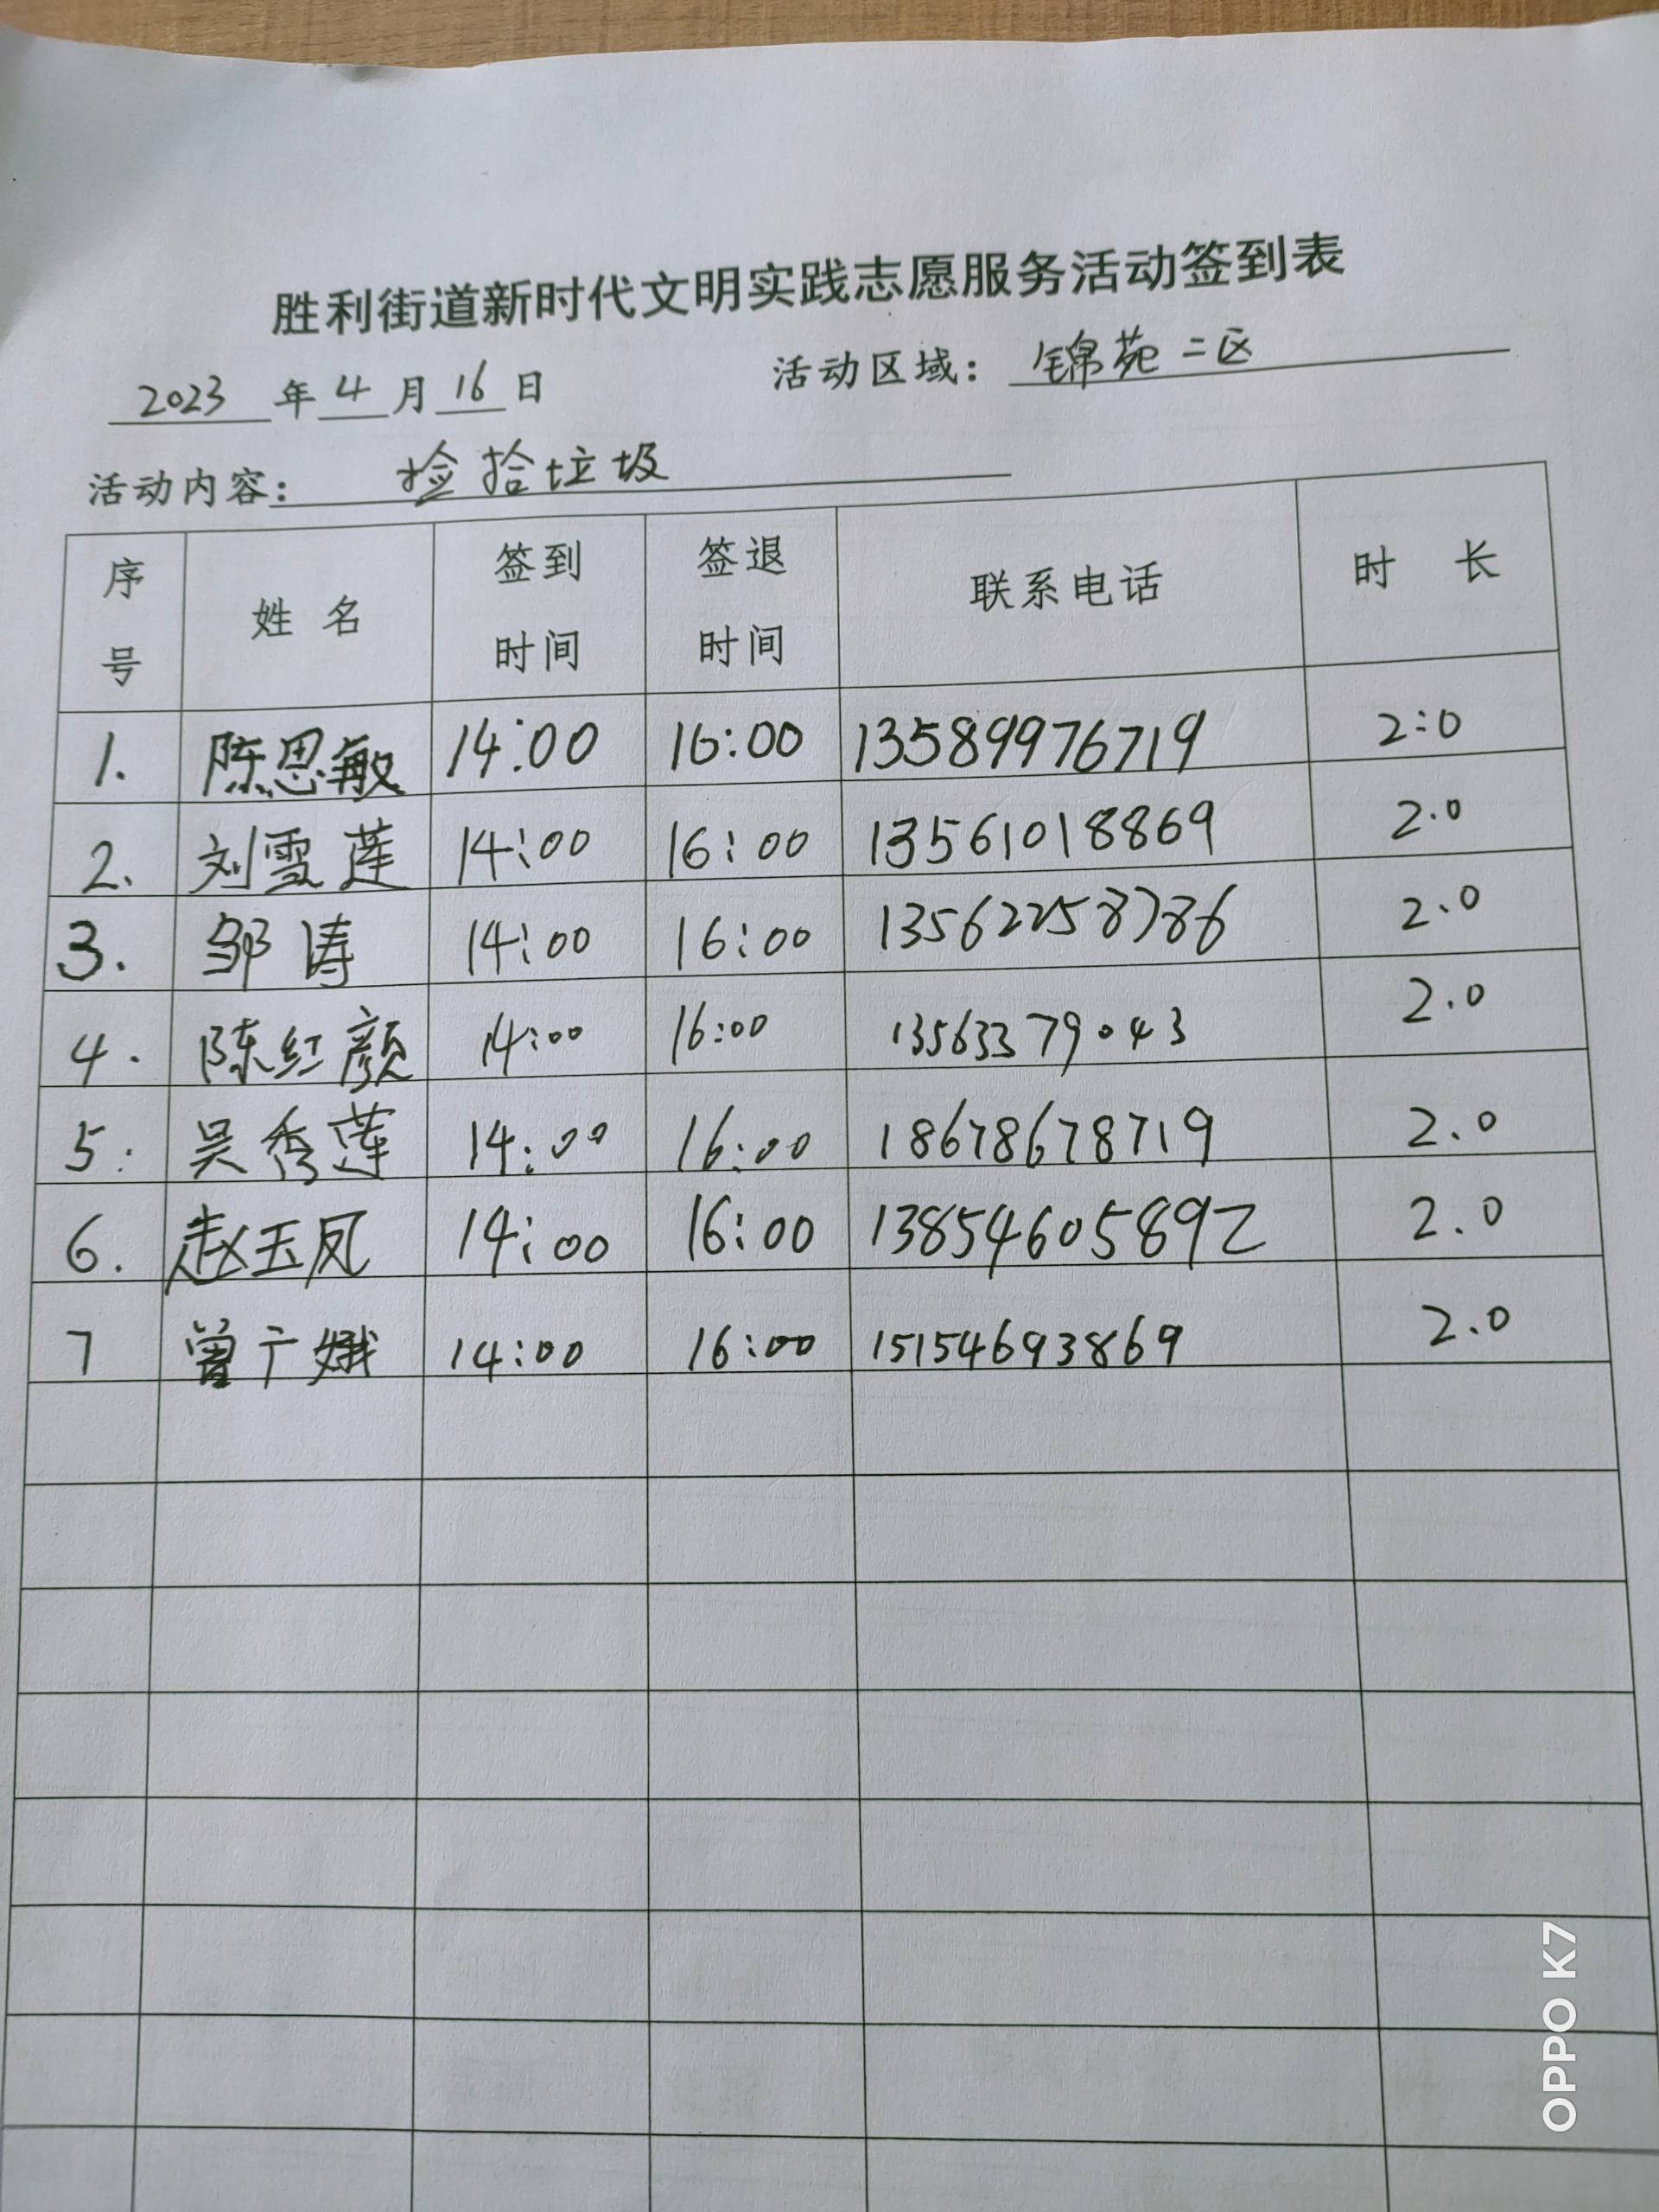 胜利街道新时代文明实践志愿服务活动签到表
2023 年 4 月 16 日 活动区域: 锦苑二区
活动内容: 捡拾垃圾
序号 姓名 签到时间 签退时间 联系电话 时长
1. 陈思敏 14:00 16:00 13589976719 2:0
2. 刘雪莲 14:00 16:00 13561018869 2.0
3. 邹涛 14:00 16:00 13562258786 2.0
4. 陈红颜 14:00 16:00 13563379043 2.0
5. 吴秀莲 14:00 16:00 18678678719 2.0
6. 赵玉凤 14:00 16:00 13854605892 2.0
7 曾广娥 14:00 16:00 15154693869 2.0
OPPO K7